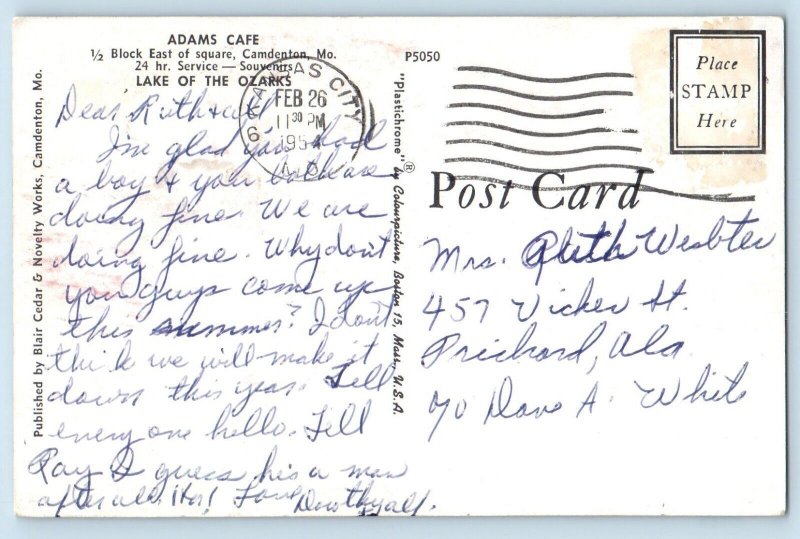 ADAMS CAFE
½ Block East of square, Camdenton, Mo.
24 hr. Service — Souvenirs
LAKE OF THE OZARKS
P5050
KANSAS CITY
FEB 26
11 30 PM
195
MO.
6
Place
STAMP
Here
Post Card
"Plastichrome" ® by Colourpicture, Boston 15, Mass., U.S.A.
Published by Blair Cedar & Novelty Works, Camdenton, Mo.
Dear Ruth & all
I'm glad you had
a boy & you both are
doing fine. We are
doing fine. Why don't
you guys come up
this summer? I don't
think we will make it
down this year. Tell
everyone hello. Tell
Ray I guess he's a man
after all. Ha! Love Dorothy & all.
Mrs. Ruth Webster
457 Vicker St.
Prichard, Ala
c/o Dave A. White